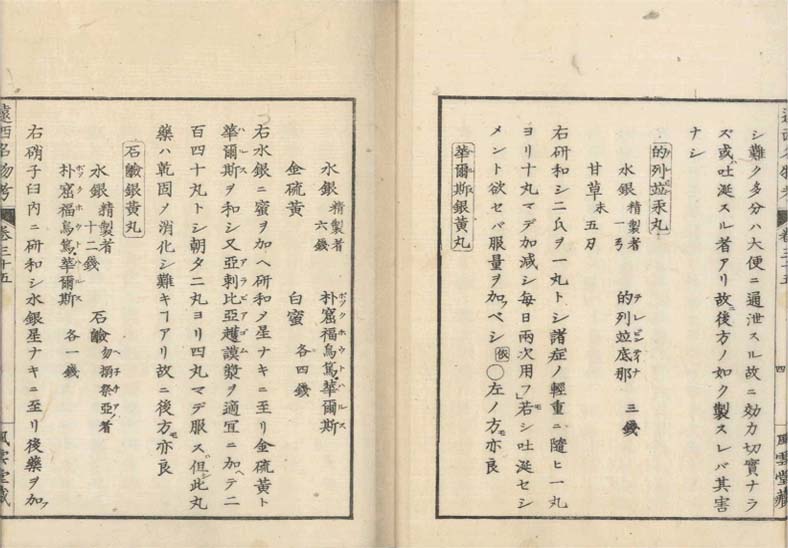 シ難ク多分ハ大便ニ通泄スル故ニ効力切實ナラ
ズ或ハ吐涎スル者アリ故ニ後方ノ如ク製スレバ其害
ナシ
的列並汞丸
水銀 精製者 一弓 的列並底那 テレビンテイナ 三錢
甘草 末 五刃
右研和シ二氏ヲ一丸トシ諸症ノ輕重ニ隨ヒ一丸
ヨリ十丸マデ加減シ毎日兩次用フ若シ吐涎セシ
メント欲セバ服量ヲ加フベシ ○左ノ方モ亦良
華爾斯銀黄丸
四
風雲堂藏
遠西名物考 卷三十五
水銀 精製者 六錢 朴窟福烏篤華爾斯 ポックホウトハルス
金硫黄 白蜜 各四錢
右水銀ニ蜜ヲ加ヘ研和メ星ナキニ至リ金硫黄ト
華爾斯ヲ和シ又亞剌比亞護謨漿ヲ適宜ニ加ヘテ二
百四十丸トシ朝夕二丸ヨリ四丸マデ服ス但シ此丸
藥ハ乾固ノ消化シ難キヿアリ故ニ後方モ亦良
石鹸銀黄丸
水銀 精製者 十二錢 石鹸 勿搦祭亞者
朴窟福烏篤華爾斯 ポックホウトハルス 各一錢
右硝子臼内ニ研和シ水銀星ナキニ至リ後藥ヲ加フ